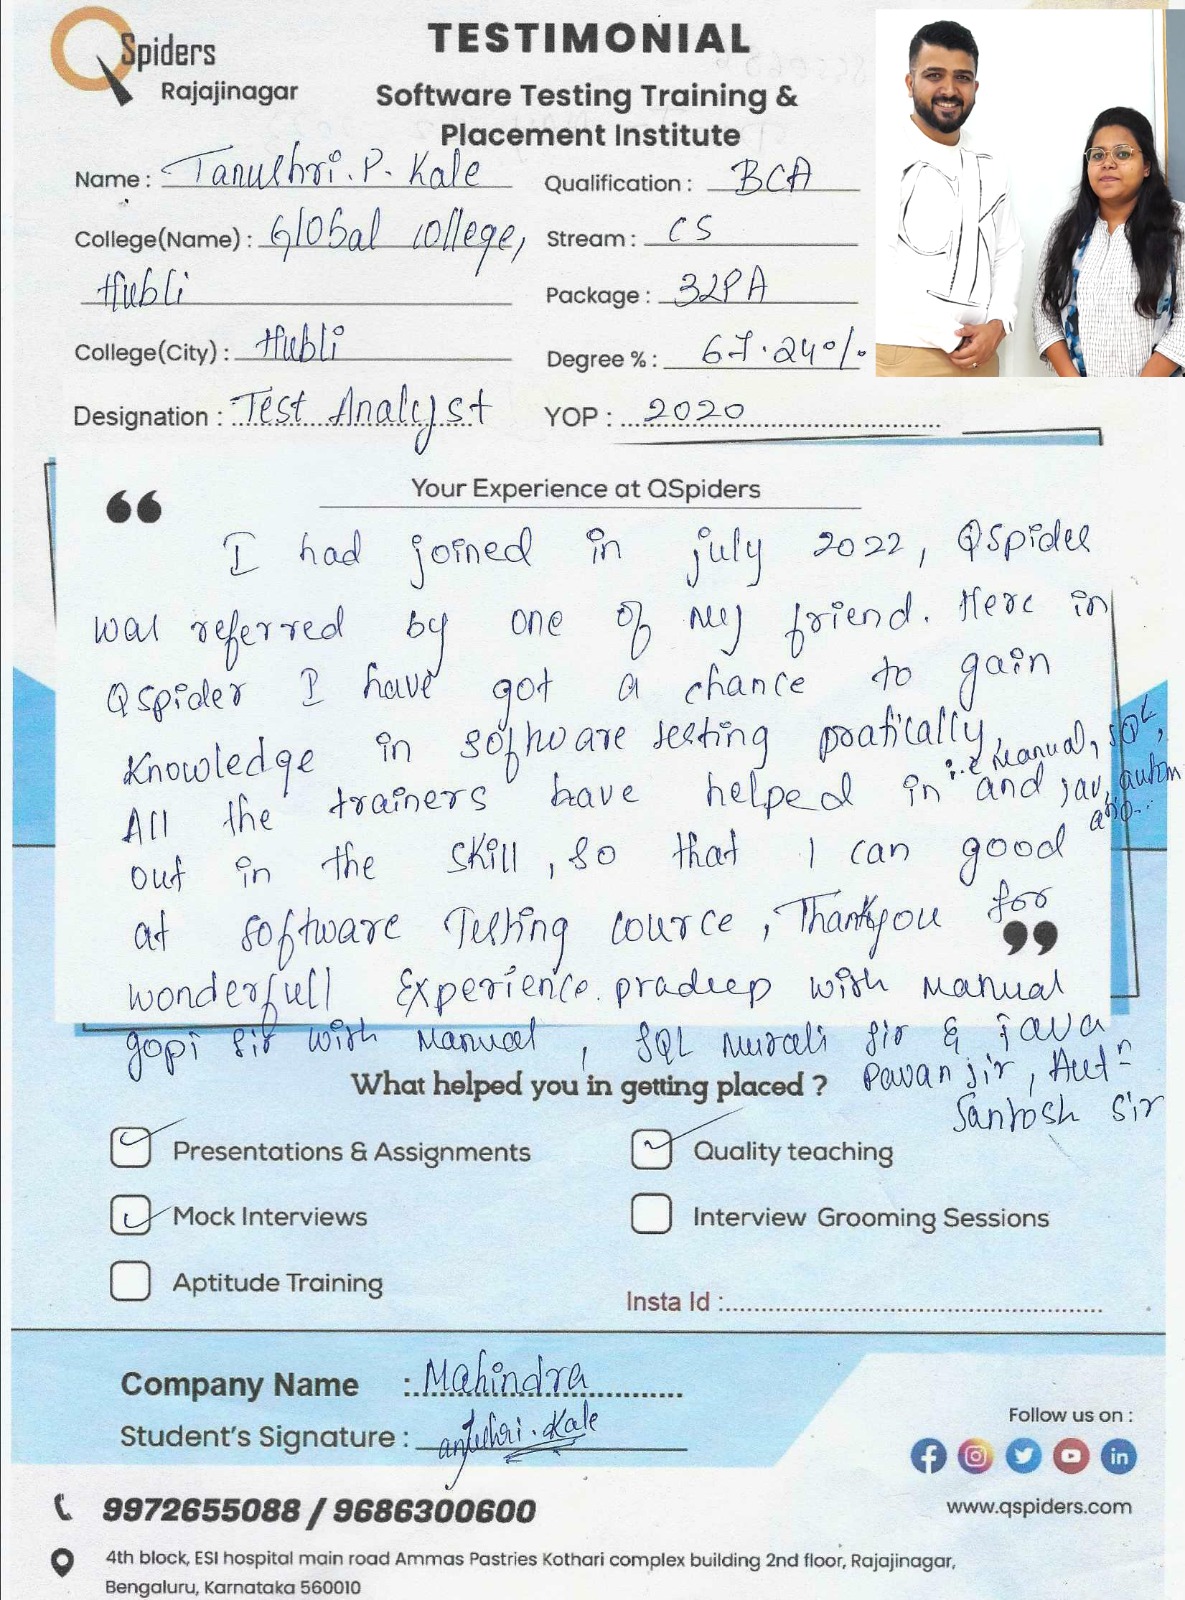 QSpiders
Rajajinagar
TESTIMONIAL
Software Testing Training &
Placement Institute
Name : Tanushri. P. Kale
Qualification : BCA
College(Name) : Global college,
Hubli
Stream : CS
Package : 3LPA
College(City) : Hubli
Degree % : 67.24%
Designation : Test Analyst
YOP : 2020
Your Experience at QSpiders
I had joined in july 2022, QSpider
was referred by one of my friend. Here in
QSpider I have got a chance to gain
Knowledge in software testing pratically,
i.e Manual, SQL,
and jav, autom
atio..
All the trainers have helped in
out in the skill, so that I can good
at software Testing cource, Thankyou for
wonderfull Experience. pradeep with Manual
gopi sir with Manual, SQL Murali sir & Java
Pavan sir, Autⁿ
Santosh Sir
What helped you in getting placed ?
Presentations & Assignments
Quality teaching
Mock Interviews
Interview Grooming Sessions
Aptitude Training
Insta Id :
Company Name : Mahindra
Student's Signature : Kale
Follow us on :
www.qspiders.com
9972655088 / 9686300600
4th block, ESI hospital main road Ammas Pastries Kothari complex building 2nd floor, Rajajinagar,
Bengaluru, Karnataka 560010